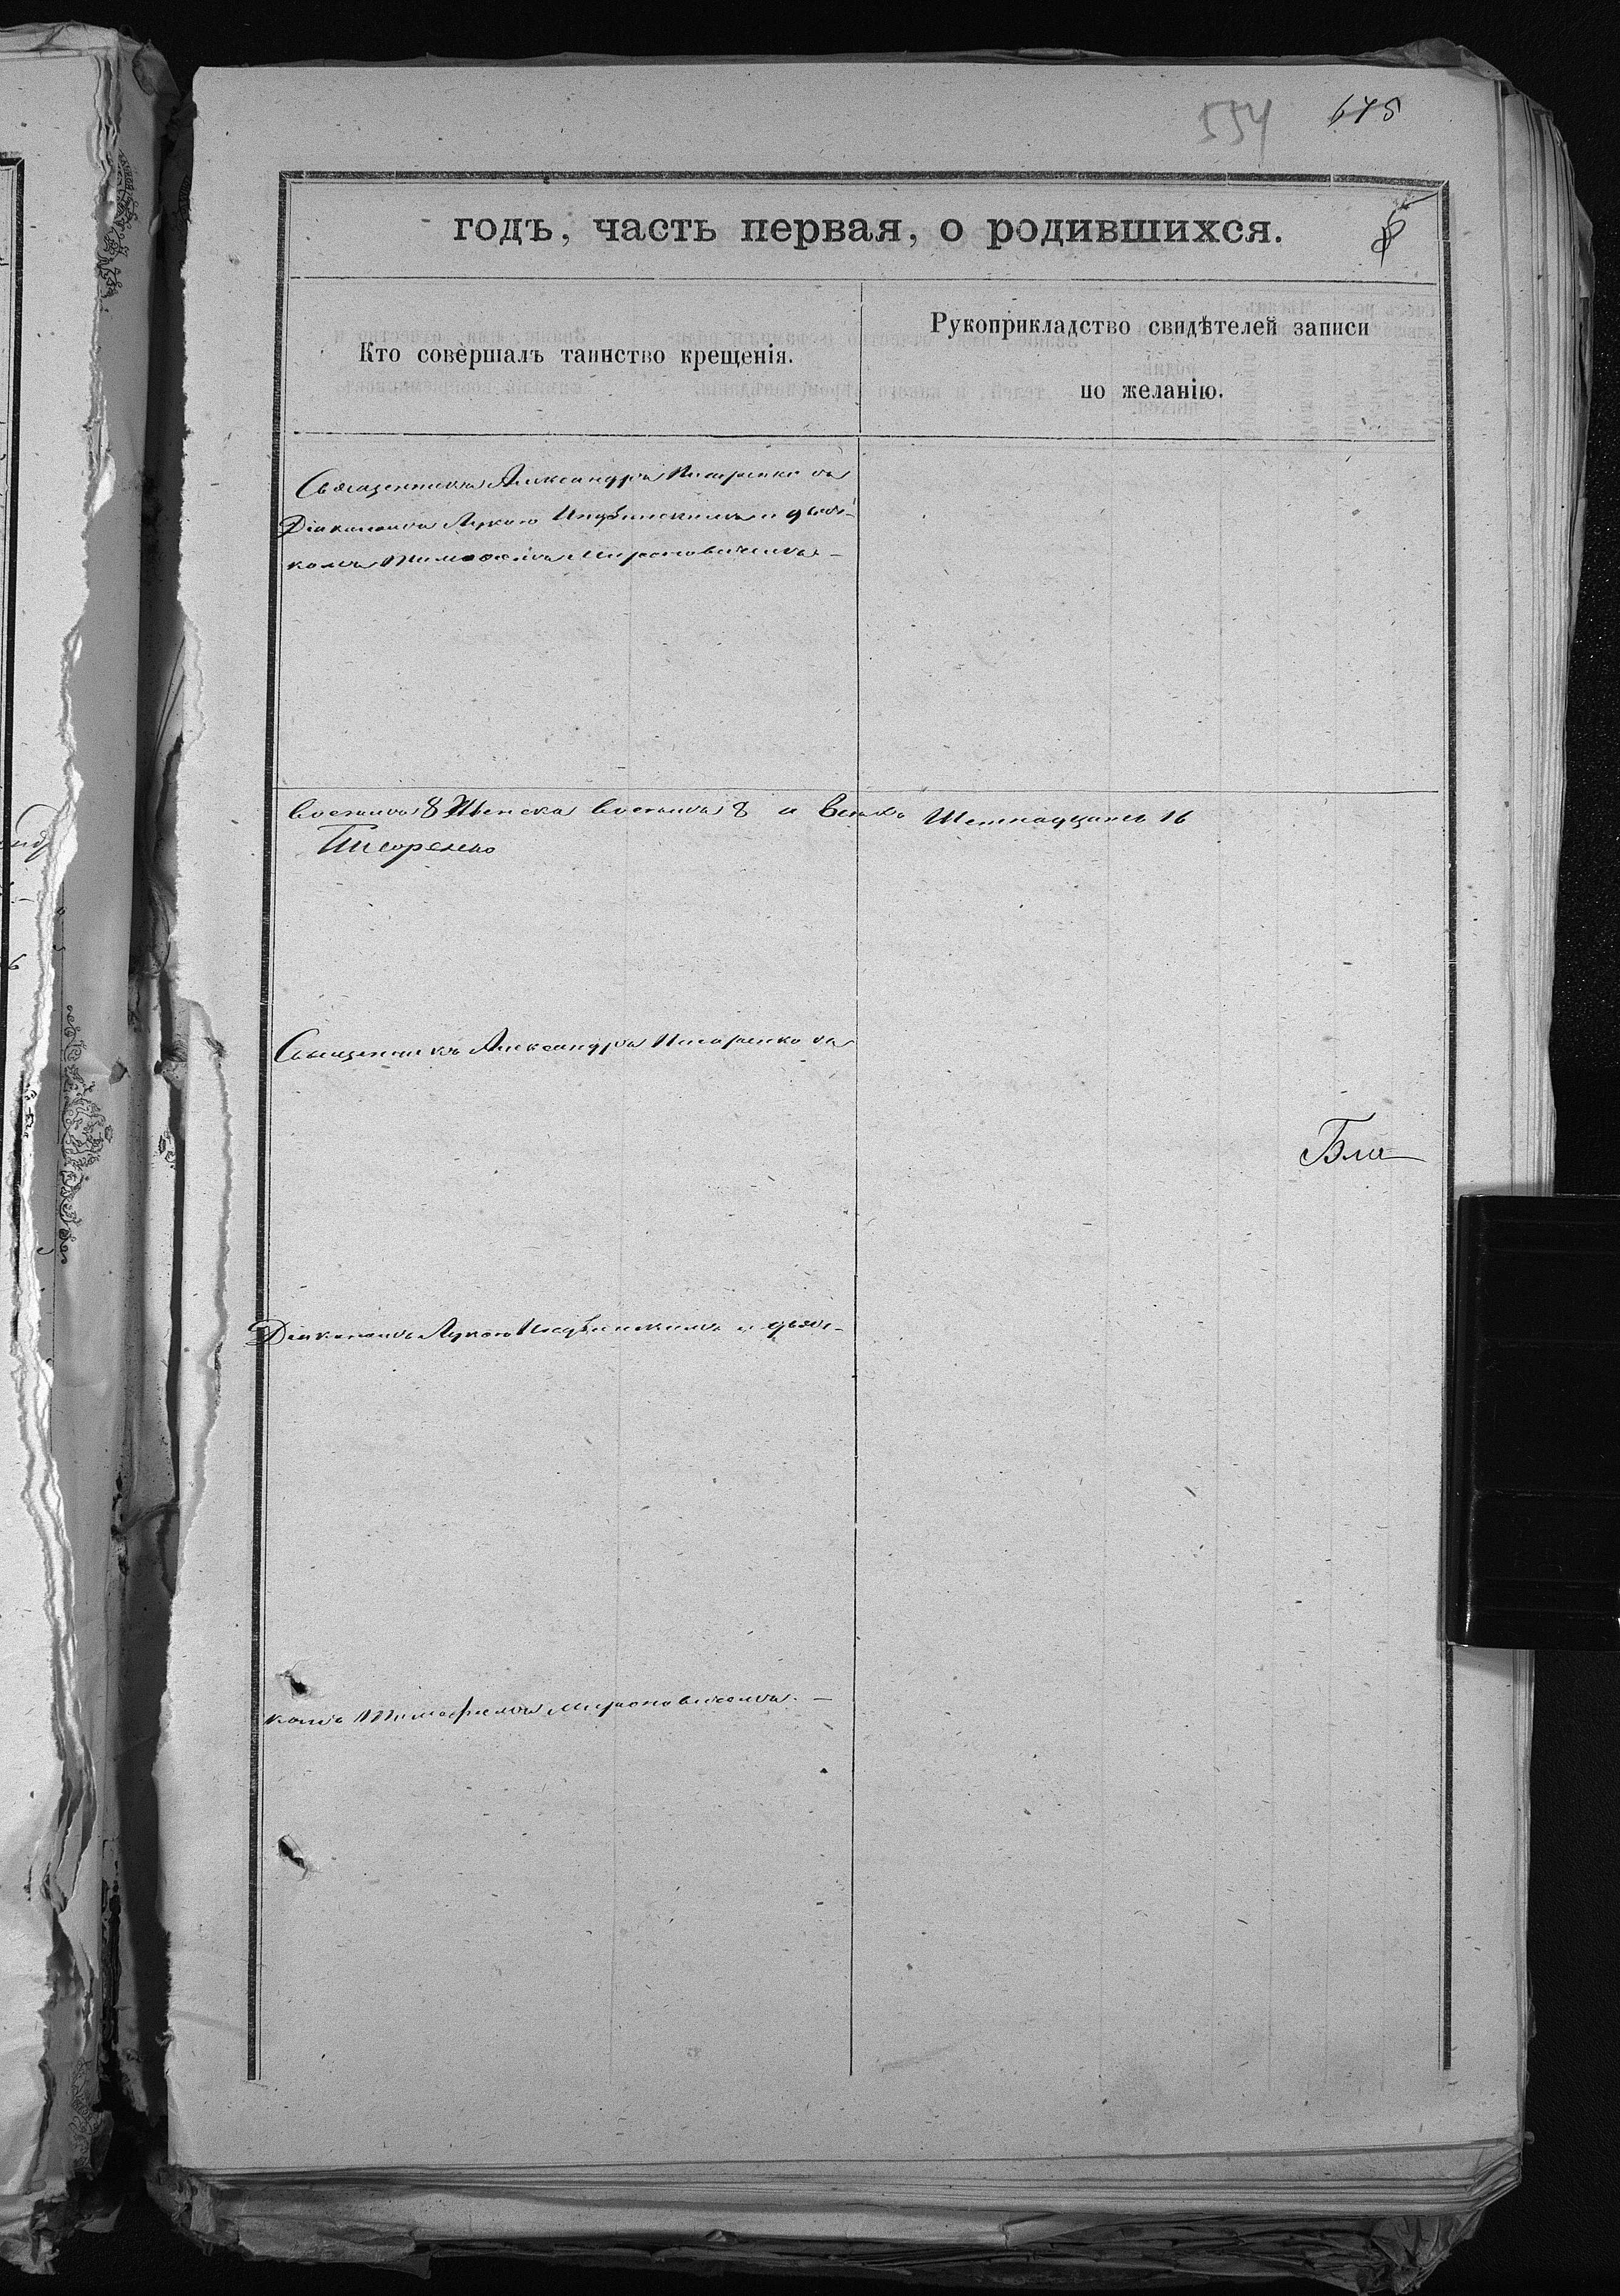 554 675
годъ, часть первая, о родившихся.
Кто совершалъ таинство крещенія.
Рукоприкладство свидѣтелей записи
по желанію.
Священникъ Александръ Писаренко съ
Діакономъ Лукою и дьяч-
комъ Тимофеемъ Мироновичемъ. —
восемь 8 Женска восемь 8 и всехъ Шестнадцать 16
Писаренко
Священникъ Александръ Писаренко съ
Бла
Діакономъ Лукою и дьяч-
комъ Тимофеемъ Мироновичемъ. —